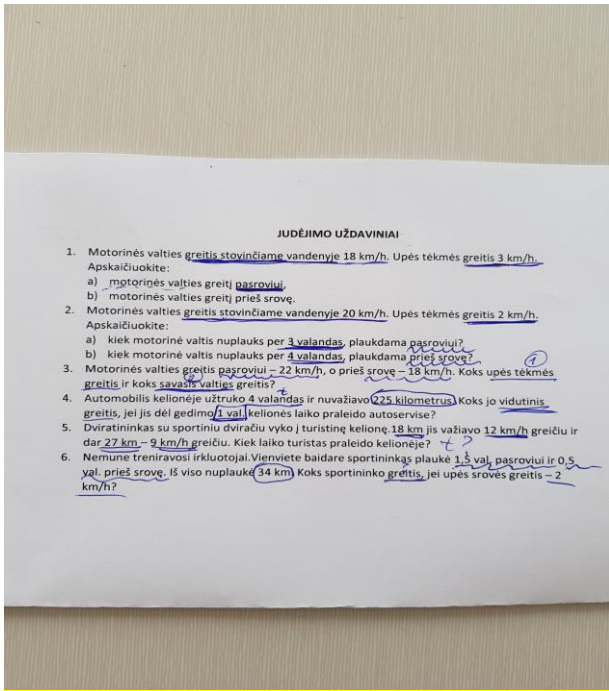 JUDĖJIMO UŽDAVINIAI
1. Motorinės valties greitis stovinčiame vandenyje 18 km/h. Upės tėkmės greitis 3 km/h.
Apskaičiuokite:
a) motorinės valties greitį pasroviui.
b) motorinės valties greitį prieš srovę.
2. Motorinės valties greitis stovinčiame vandenyje 20 km/h. Upės tėkmės greitis 2 km/h.
Apskaičiuokite:
a) kiek motorinė valtis nuplauks per 3 valandas, plaukdama pasroviui?
b) kiek motorinė valtis nuplauks per 4 valandas, plaukdama prieš srovę?
1
3. Motorinės valties greitis pasroviui – 22 km/h, o prieš srovę – 18 km/h. Koks upės tėkmės
2
greitis ir koks savasis valties greitis?
t
4. Automobilis kelionėje užtruko 4 valandas ir nuvažiavo 225 kilometrus. Koks jo vidutinis
greitis, jei jis dėl gedimo 1 val. kelionės laiko praleido autoservise?
5. Dviratininkas su sportiniu dviračiu vyko į turistinę kelionę. 18 km jis važiavo 12 km/h greičiu ir
dar 27 km – 9 km/h greičiu. Kiek laiko turistas praleido kelionėje? t ?
6. Nemune treniravosi irkluotojai. Vienviete baidare sportininkas plaukė 1,5 val. pasroviui ir 0,5
val. prieš srovę. Iš viso nuplaukė 34 km. Koks sportininko greitis, jei upės srovės greitis – 2
km/h?